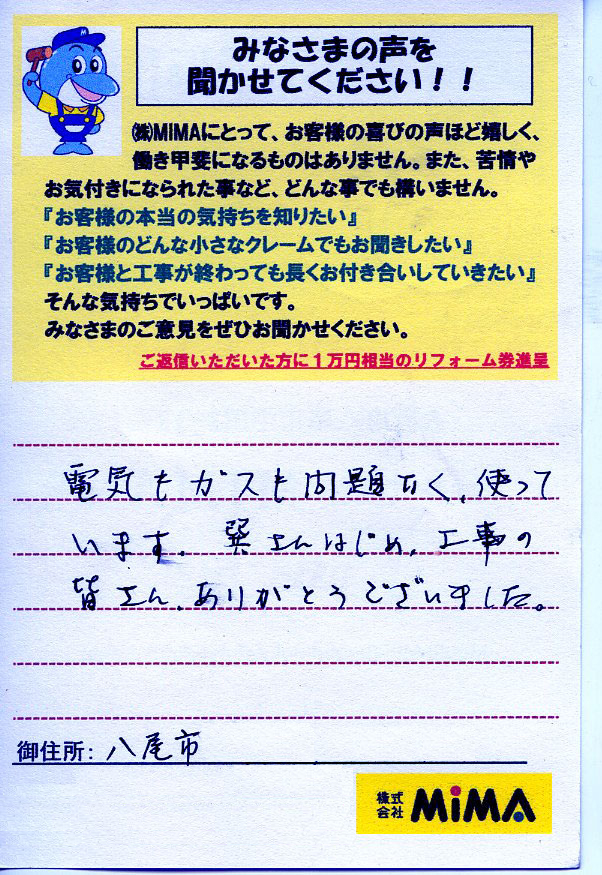 みなさまの声を
聞かせてください！！
㈱MIMAにとって、お客様の喜びの声ほど嬉しく、
働き甲斐になるものはありません。また、苦情や
お気付きになられた事など、どんな事でも構いません。
『お客様の本当の気持ちを知りたい』
『お客様のどんな小さなクレームでもお聞きしたい』
『お客様と工事が終わっても長くお付き合いしていきたい』
そんな気持ちでいっぱいです。
みなさまのご意見をぜひお聞かせください。
ご返信いただいた方に１万円相当のリフォーム券進呈
電気もガスも問題なく、使って
います。巽さんはじめ、工事の
皆さん、ありがとうございました。
御住所：八尾市
株式会社 MiMA
M